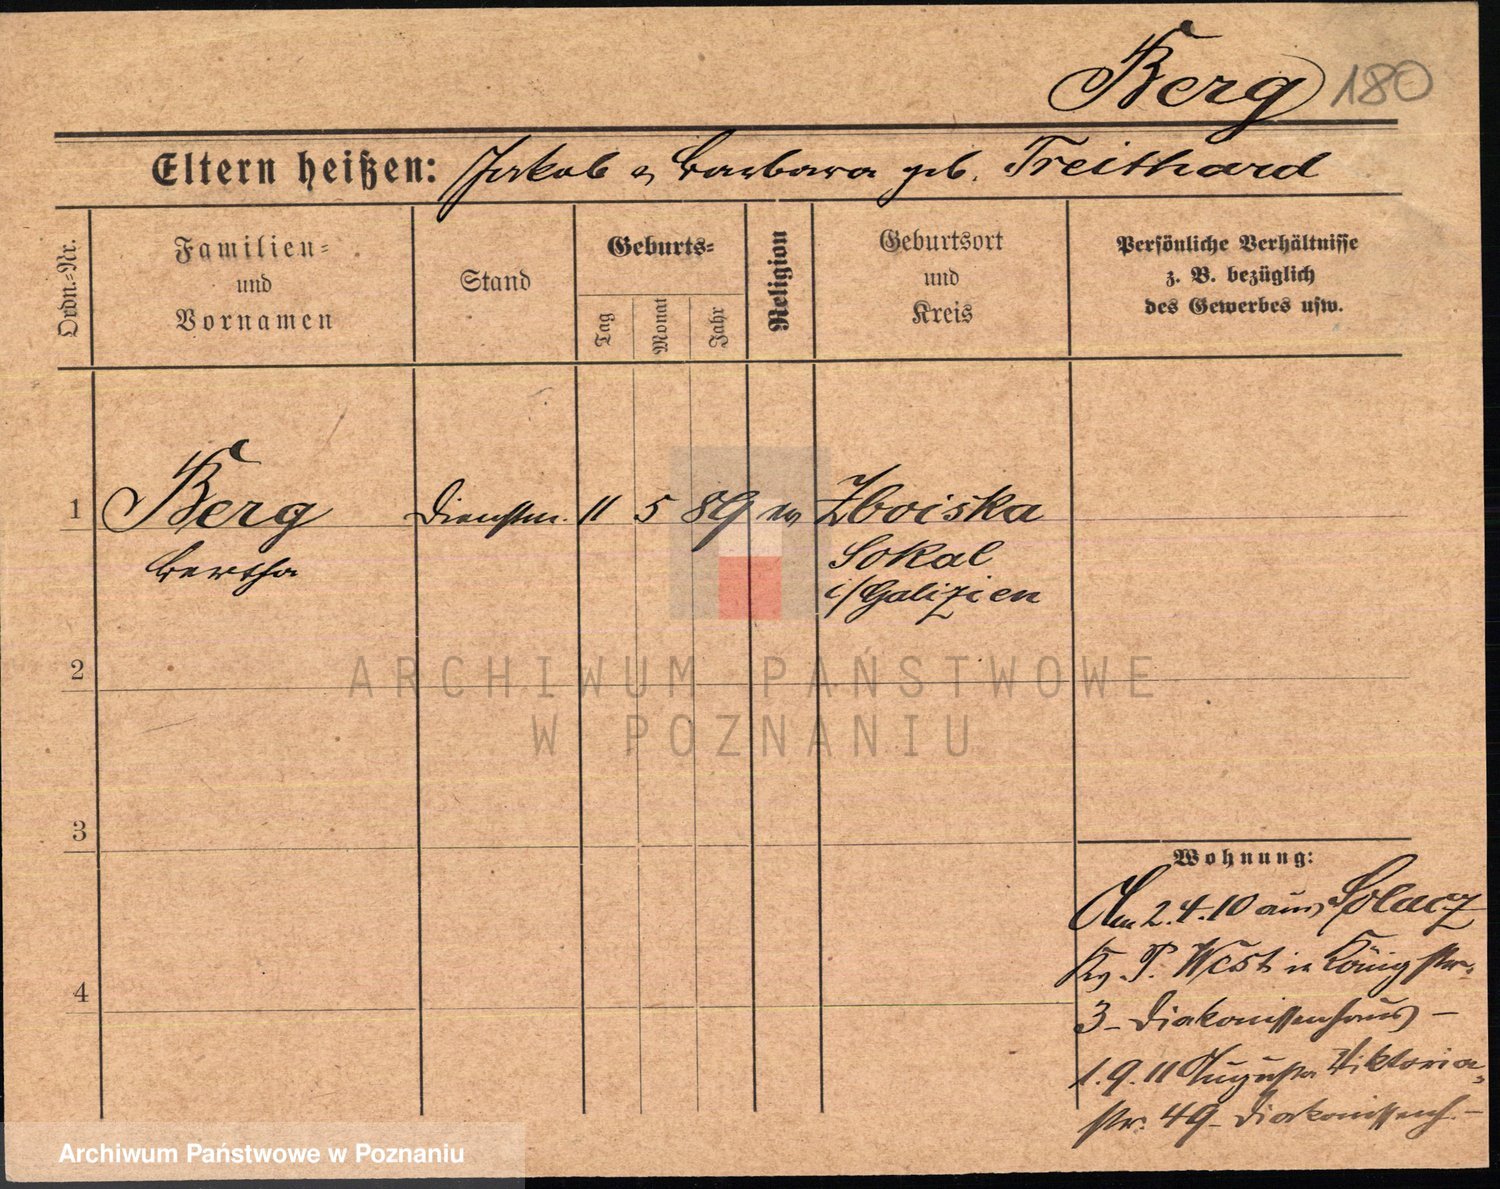 Berg 180
Eltern heißen: Jakob u Barbara geb. Treithard
Ordn.-Nr.
Familien-
und
Vornamen
Stand
Geburts-
Tag
Monat
Jahr
Religion
Geburtsort
und
Kreis
Persönliche Verhältnisse
z. B. bezüglich
des Gewerbes usw.
1 Berg Dienstm. 11 5 89 ev Zboiska
Bertha Sokal
i/Galizien
2
ARCHIWUM PAŃSTWOWE
W POZNANIU
3
4
Wohnung:
Am 2.4.10 aus Solacz
Kr. P. West in Königstr.
3 – Diakonissenhaus –
1.9.11 Augusta Viktoria-
str. 49 – Diakonissenh. –
Archiwum Państwowe w Poznaniu